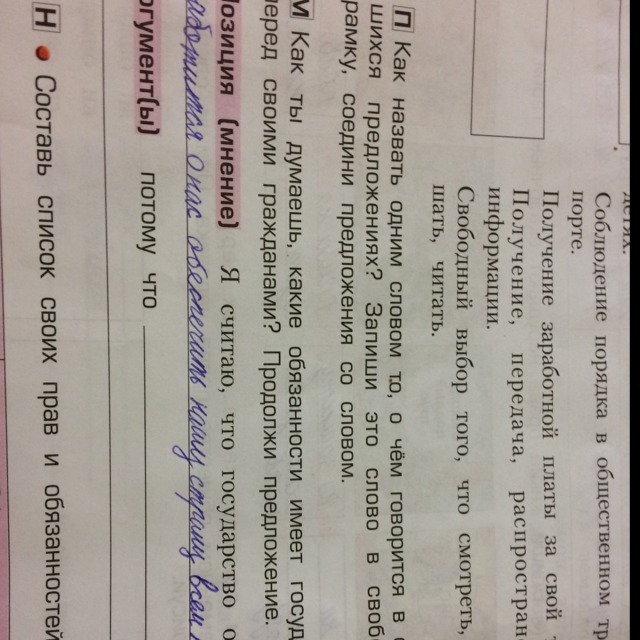 детях.
Соблюдение порядка в общественном тр
порте.
Получение заработной платы за свой т
Получение, передача, распростран
информации.
Свободный выбор того, что смотреть,
шать, читать.
П Как назвать одним словом то, о чём говорится в с
шихся предложениях? Запиши это слово в своб
рамку, соедини предложения со словом.
М Как ты думаешь, какие обязанности имеет госуд
перед своими гражданами? Продолжи предложение.
Позиция (мнение) Я считаю, что государство о
заботится о нас обеспечить нашу страну всем
аргумент(ы) потому что
Н Составь список своих прав и обязанностей